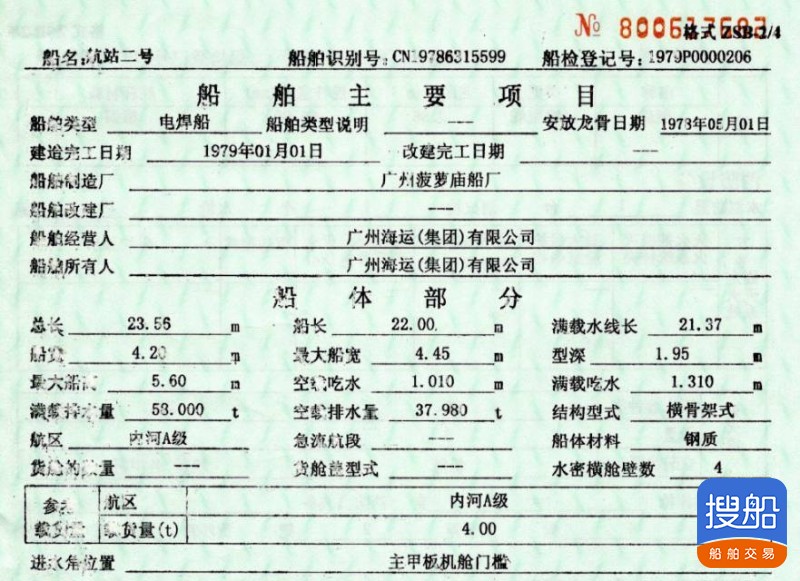 № 格式 ZSB-2/4
船名: 航站二号 船舶识别号: CN19786315599 船检登记号: 1979P0000206
船 舶 主 要 项 目
船舶类型 电焊船 船舶类型说明 --- 安放龙骨日期 1978年05月01日
建造完工日期 1979年01月01日 改建完工日期 ---
船舶制造厂 广州菠萝庙船厂
船舶改建厂 ---
船舶经营人 广州海运(集团)有限公司
船舶所有人 广州海运(集团)有限公司
船 体 部 分
总长 23.56 m 船长 22.00 m 满载水线长 21.37 m
船宽 4.20 m 最大船宽 4.45 m 型深 1.95 m
最大船高 5.60 m 空载吃水 1.010 m 满载吃水 1.310 m
满载排水量 t 空载排水量 37.980 t 结构型式 横骨架式
航区 内河A级 急流航段 --- 船体材料 钢质
货舱的数量 --- 货舱盖型式 --- 水密横舱壁数 4
参考 航区 内河A级
载货量 载货量(t) 4.00
进水角位置 主甲板机舱门槛
搜船
船舶交易